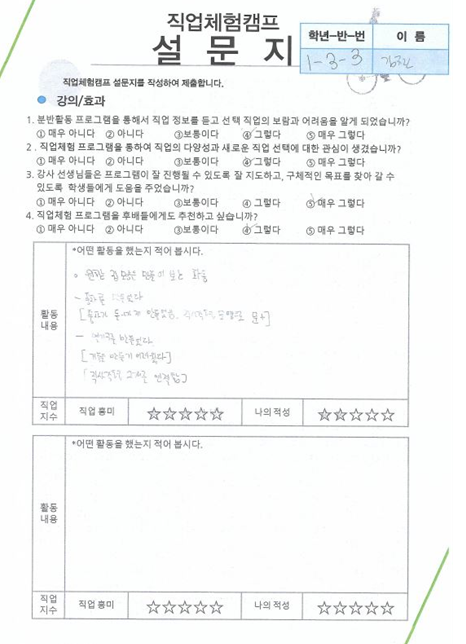 직업체험캠프
설 문 지
학년-반-번 이 름
1-3-3
직업체험캠프 설문지를 작성하여 제출합니다.
강의/효과
1. 분반활동 프로그램을 통해서 직업 정보를 듣고 선택 직업의 보람과 어려움을 알게 되었습니까?
① 매우 아니다 ② 아니다 ③보통이다 ④ 그렇다 ⑤ 매우 그렇다
2 . 직업체험 프로그램을 통하여 직업의 다양성과 새로운 직업 선택에 대한 관심이 생겼습니까?
① 매우 아니다 ② 아니다 ③보통이다 ④ 그렇다 ⑤ 매우 그렇다
3. 강사 선생님들은 프로그램이 잘 진행될 수 있도록 잘 지도하고, 구체적인 목표를 찾아 갈 수
있도록 학생들에게 도움을 주었습니까?
① 매우 아니다 ② 아니다 ③보통이다 ④ 그렇다 ⑤ 매우 그렇다
4. 직업체험 프로그램을 후배들에게도 추천하고 싶습니까?
① 매우 아니다 ② 아니다 ③보통이다 ④ 그렇다 ⑤ 매우 그렇다
*어떤 활동을 했는지 적어 봅시다.
활동
내용
직업
지수 직업 흥미 ☆☆☆☆☆ 나의 적성 ☆☆☆☆☆
*어떤 활동을 했는지 적어 봅시다.
활동
내용
직업
지수 직업 흥미 ☆☆☆☆☆ 나의 적성 ☆☆☆☆☆